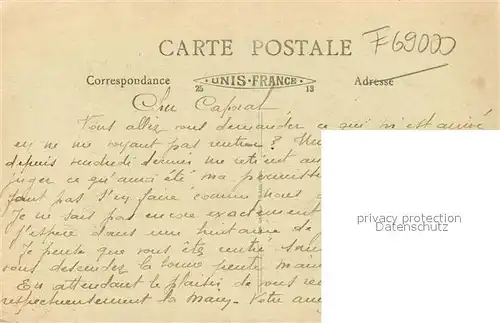 CARTE POSTALE
F69000
Correspondance
UNIS-FRANCE
25 13
Adresse
Cher Caporal
Vous allez vous demander ce qui m'est arrivé
en ne me voyant pas rentrer ?
depuis vendredi dernier me retient au
juger ce qu'aura été ma permission
faut pas s'en faire comme nous
Je ne sais pas encore exactement
J'espère dans une huitaine de
Je pense que vous êtes rentré
vous descendez la bonne pente
En attendant le plaisir de vous
respectueusement la main. Votre
privacy protection
Datenschutz